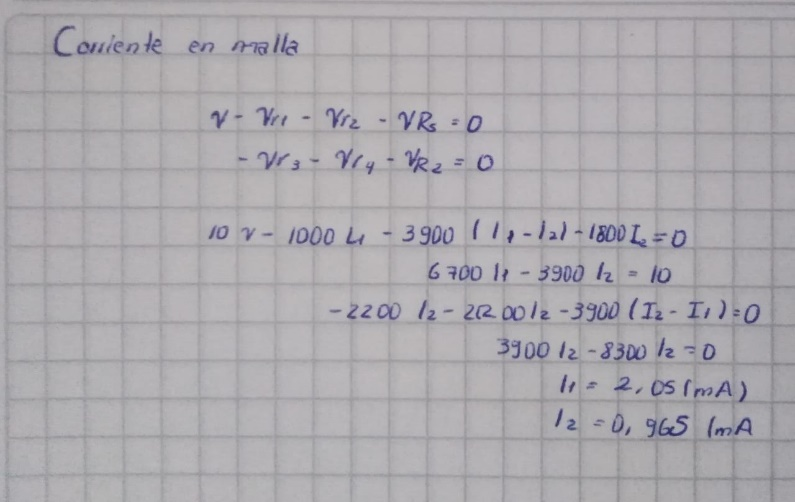 Corriente en malla
V - Vr1 - Vr2 - VR5 = 0
- Vr3 - Vr4 - VR2 = 0
10 V - 1000 I1 - 3900 (I1 - I2) - 1800 I2 = 0
6700 I1 - 3900 I2 = 10
-2200 I2 - 2200 I2 - 3900 (I2 - I1) = 0
3900 I2 - 8300 I2 = 0
I1 = 2,05 (mA)
I2 = 0,965 (mA